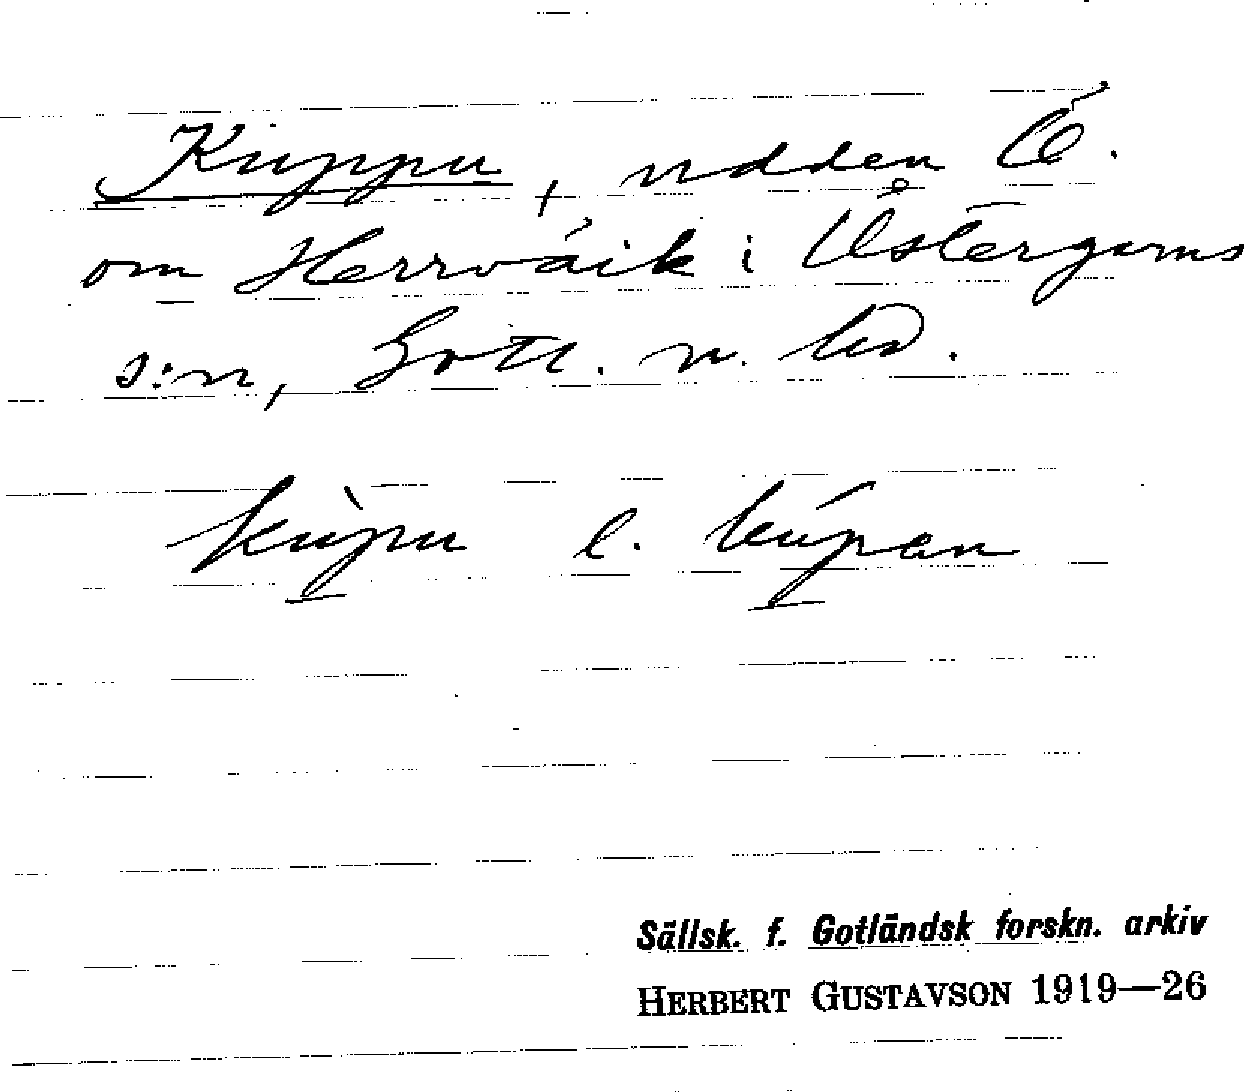 Kuppu, udden Ö.
om Herrvåik i Östergarns
s:n, Gotl. n. hd.
kùpu l. kúpan
Sällsk. f. Gotländsk forskn. arkiv
HERBERT GUSTAVSON 1919—26